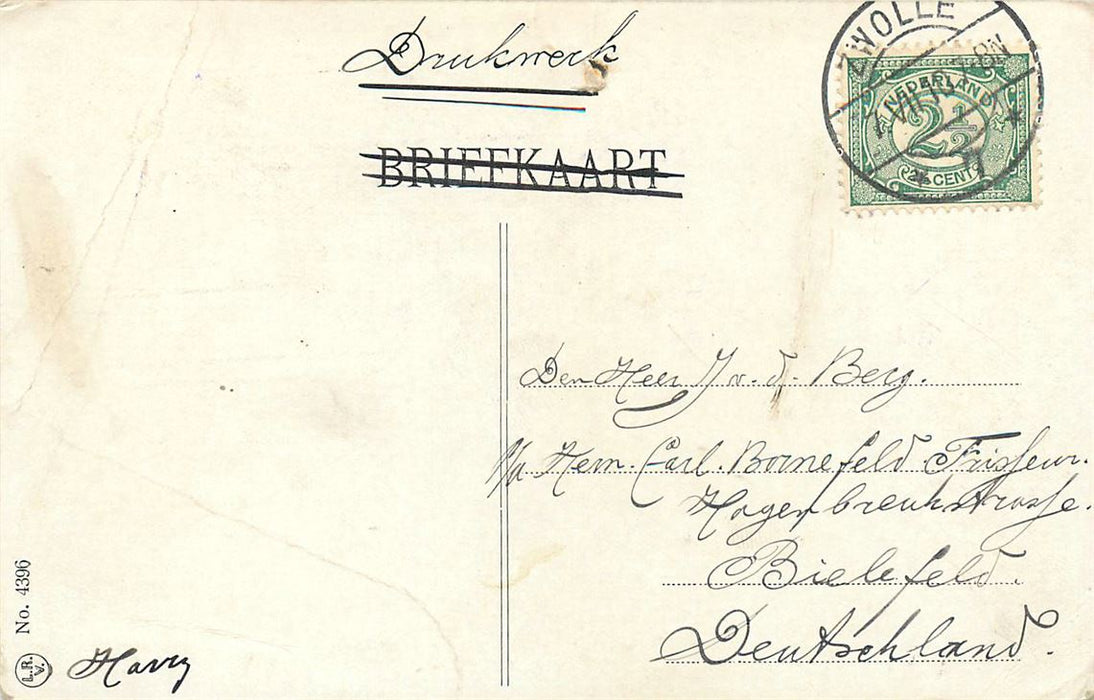 Drukwerk
BRIEFKAART
ZWOLLE
NEDERLAND
2½
CENT
Den Heer J v. d. Berg.
p/a Hern. Carl. Bornefeld Frisseur.
Hagenbreukstrasse.
Bielefeld.
Deutschland.
No. 4396
L.R.
V.
Harry